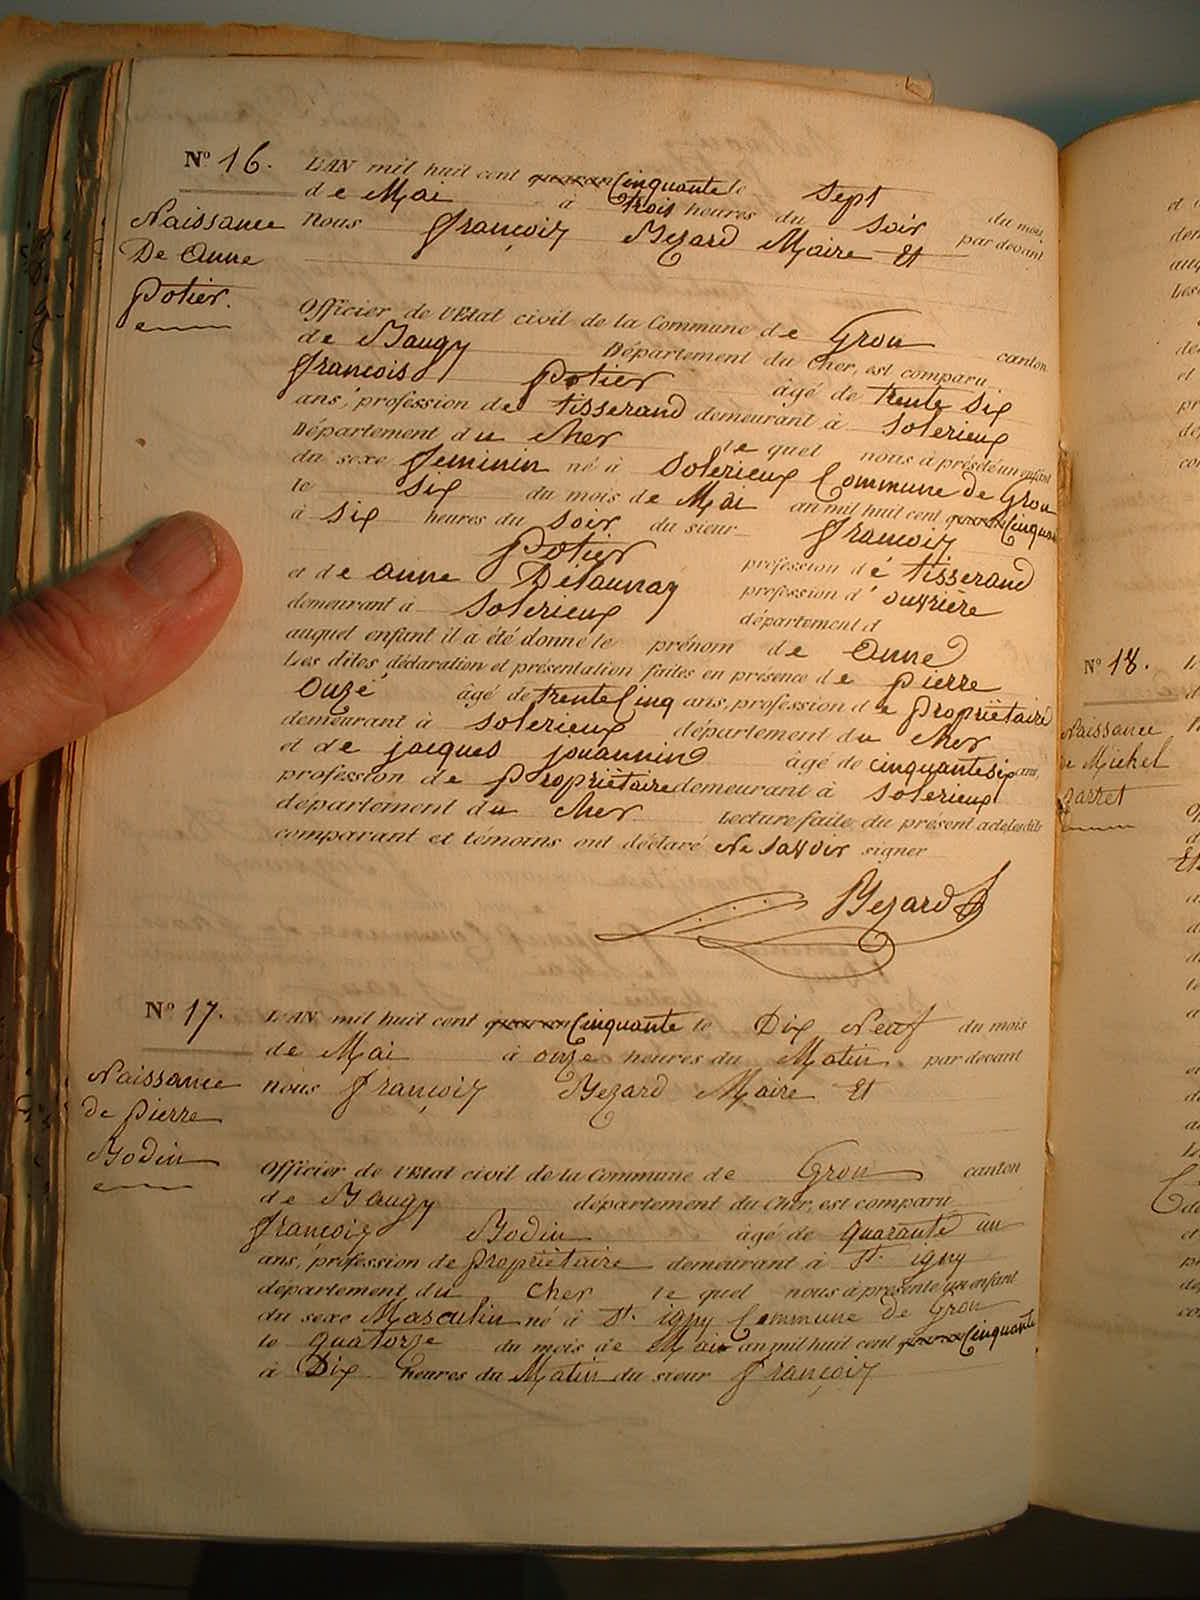 Nº 16.
Naissance
De Anne
Potier.
L'AN mil huit cent quaran Cinquante le Sept du mois
de Mai à trois heures du Soir par devant
Nous françois Bezard Maire Et
Officier de l'Etat civil de la Commune de Gron canton
de Baugy Département du Cher, est comparu
françois Potier âgé de trente Six
ans, profession de tisserand demeurant à Solerieux
Département du Cher le quel nous à présété un enfant
du sexe feminin né à Solerieux Commune de Gron
le Six du mois de Mai an mil huit cent Cinquan
à Six heures du Soir du sieur françois
Potier profession de tisserand
et de anne Delaunay profession d' ouvrière
demeurant à Solerieux département d
auquel enfant il à été donné le prénom de Anne
Les dites déclaration et présentation faites en présence de pierre
Ouzé âgé de trente Cinq ans, profession de propriëtaire
demeurant à Solerieux département du Cher
et de jacques jouannin âgé de cinquante six ans,
profession de Propriëtaire demeurant à Solerieux
département du Cher. Lecture faite du présent acte les dits
comparant et témoins ont déclaré Ne Savoir signer
Bezard
Nº 17.
Naissance
de pierre
Bodin
L'AN mil huit cent quaran Cinquante le Dix Neuf du mois
de Mai à onze heures du Matin. par devant
nous françois Bezard Maire Et
Officier de l'Etat civil de la Commune de Gron canton
de Baugy département du Cher, est comparu
françois Bodin âgé de quarante un
ans, profession de propriëtaire demeurant à St. igny
département du Cher le quel nous à présenté un enfant
du sexe Masculin né à St. igny Commune de Gron
le quatorze du mois de Mai an mil huit cent Cinquante
à Dix heures du Matin du sieur françois
Nº 18.
Naissance
de Michel